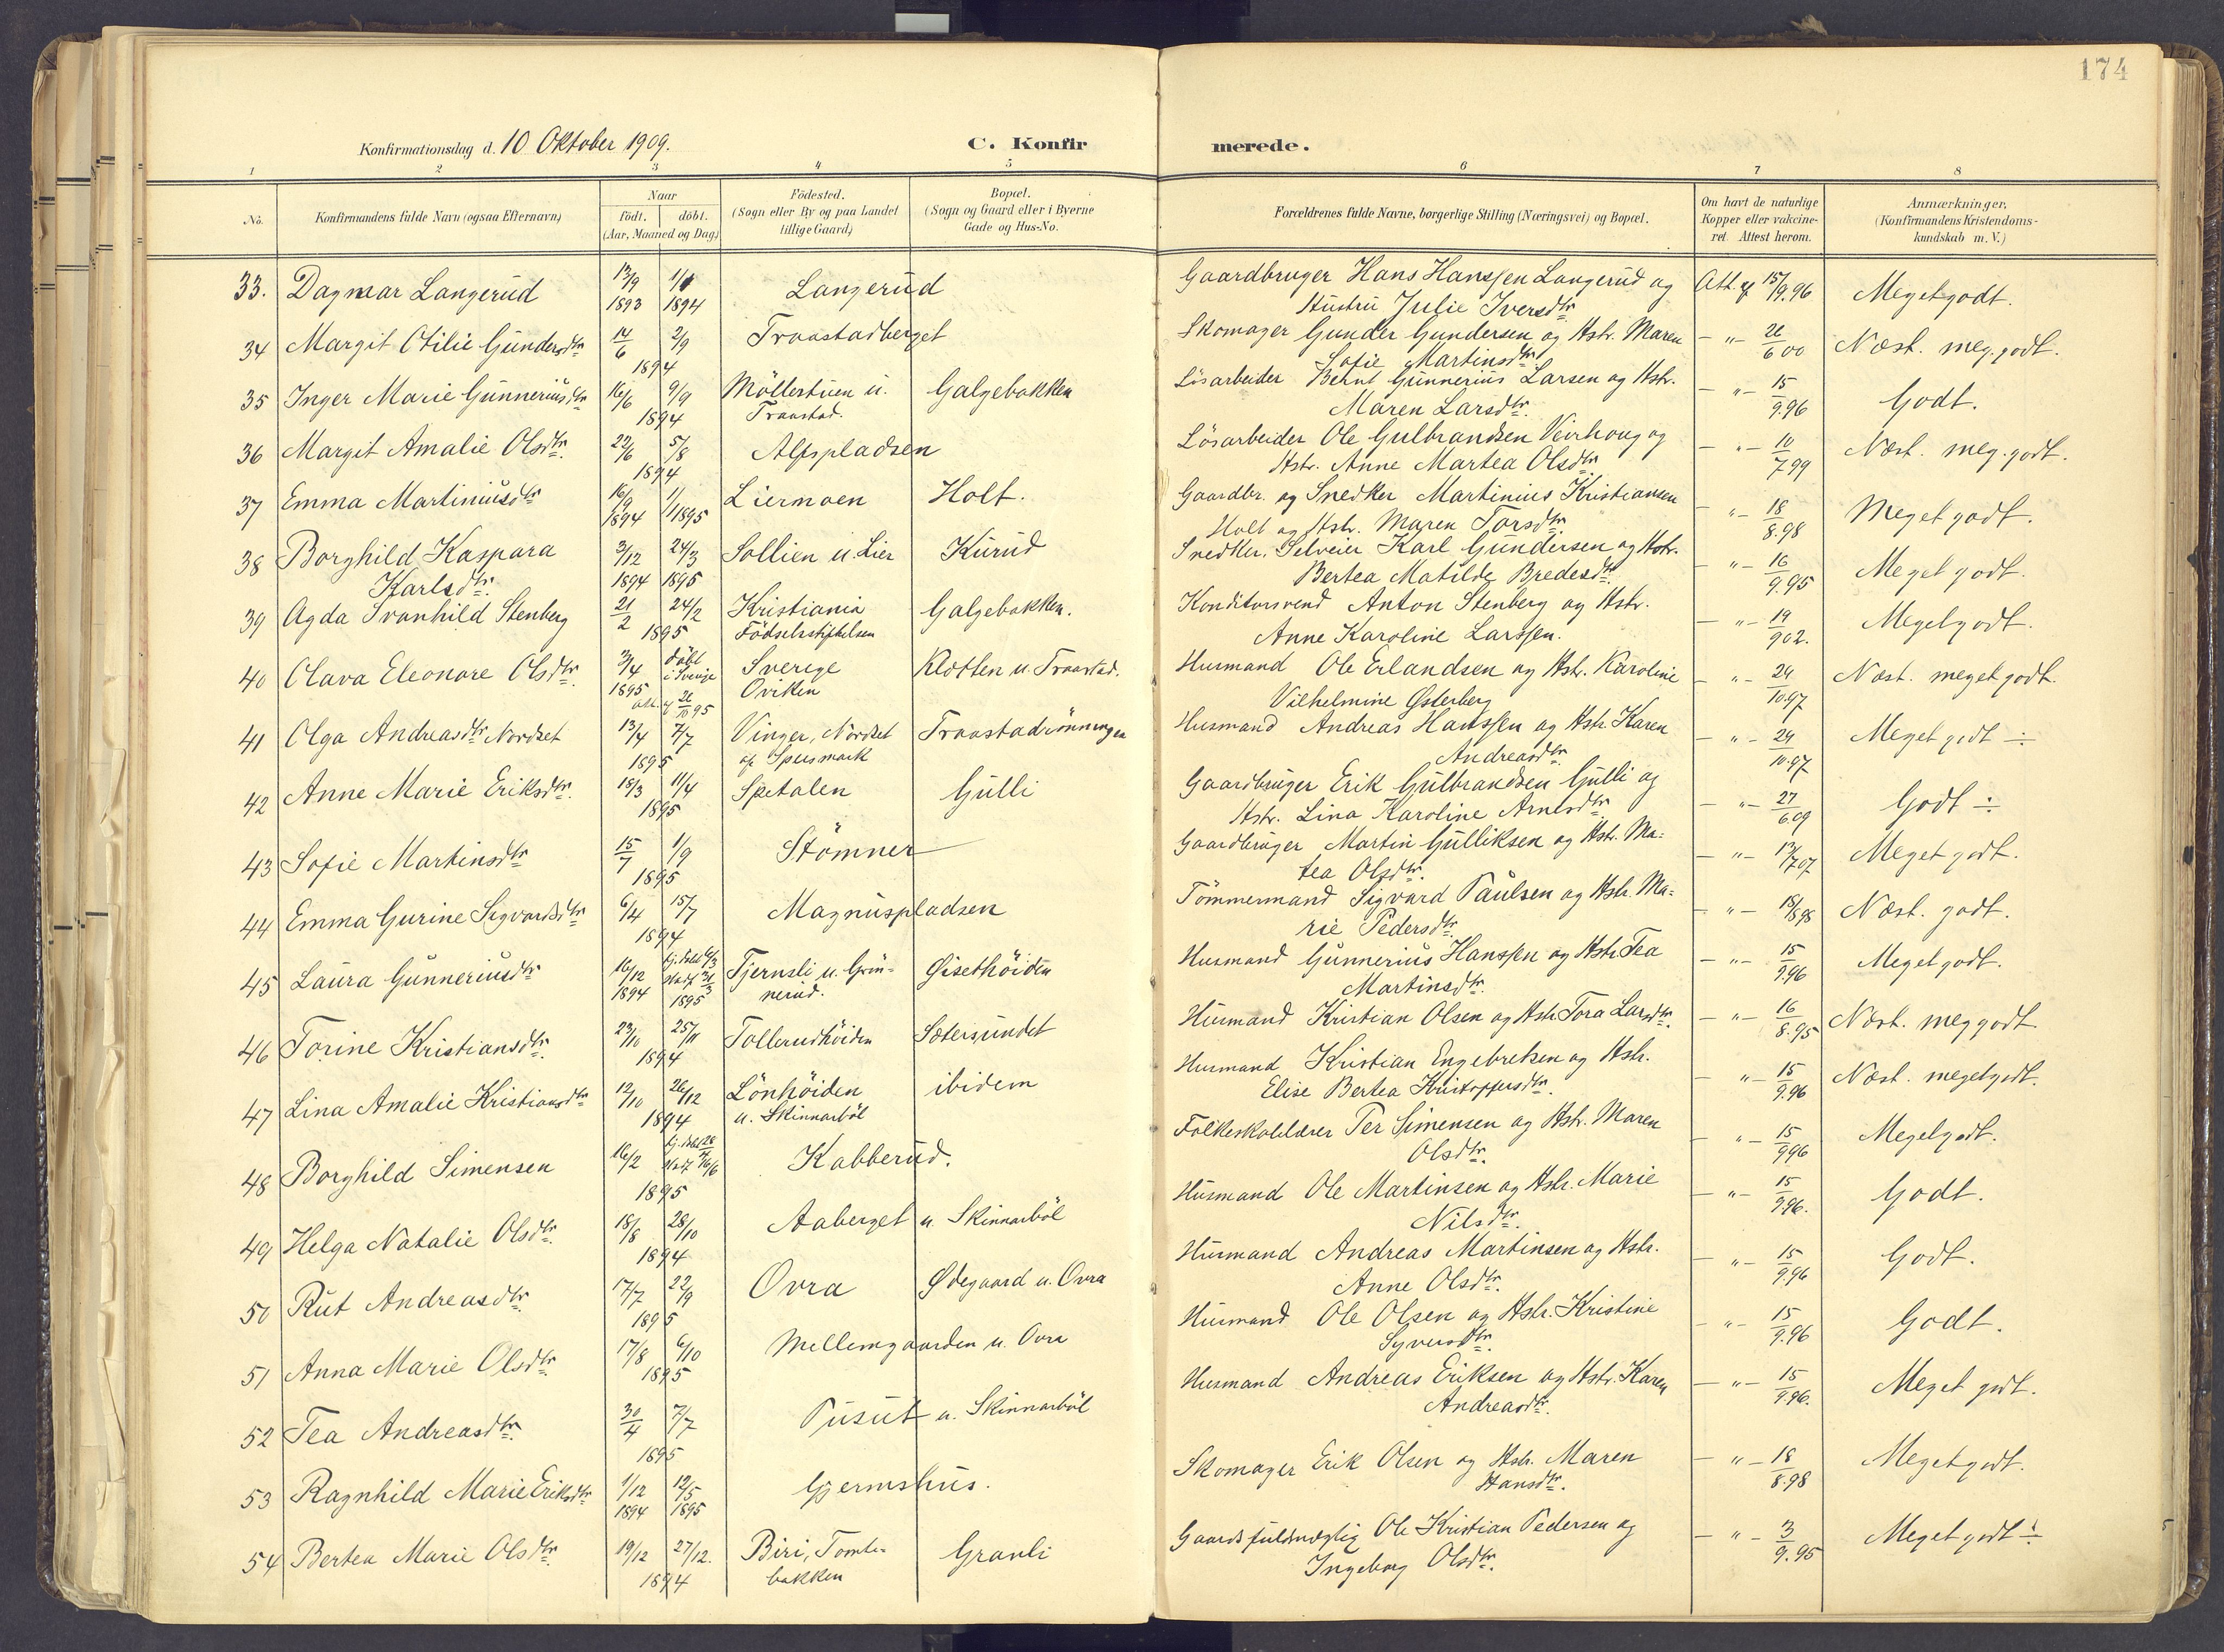 174
Konfirmationsdag d. 10 Oktober 1909.
C. Konfirmerede.
1 2 3 4 5 6 7 8
No.
Konfirmandens fulde Navn (ogsaa Efternavn)
Naar
födt. döbt.
(Aar, Maaned og Dag)
Födested.
(Sogn eller By og paa Landet
tillige Gaard)
Bopæl.
(Sogn og Gaard eller i Byerne
Gade og Hus-No.
Forældrenes fulde Navne, borgerlige Stilling (Næringsvei) og Bopæl.
Om havt de naturlige
Kopper eller vakcine-
ret. Attest herom.
Anmærkninger,
(Konfirmandens Kristendoms-
kundskab m. V.)
33. Dagmar Langerud 13/9 1893 1/1 1894 Langerud Gaardbruger Hans Hanssen Langerud og Att. af 15/9.96 Meget godt.
Hustru Julie Iversdtr.
34 Margit Otilie Gundersdtr. 14/6 2/9 1894 Traastadberget Skomager Gunder Gundersen og Hstr. Maren — " — 26/6 00 Næst. meg. godt.
Sofie Martinsdtr.
35 Inger Marie Gunneriusdtr. 16/6 9/9 1894 Möllestuen u. Traastad. Galgebakken Lösarbeider Bernt Gunnerius Larsen og Hstr. — " — 15/9.96 Godt.
Maren Larsdtr.
36 Margit Amalie Olsdtr. 22/6 5/8 1894 Alfspladsen Lösarbeider Ole Gulbrandsen Veirhoug og — " — 10/7.99 Næst. meg. godt.
Hstr. Anne Martea Olsdtr.
37 Emma Martiniusdtr 16/9 1894 1/1 1895 Liermoen Holt. Gaardbr. og Snedker Martinius Kristiansen — " — 18/8.98 Meget godt.
Holt og Hstr. Maren Torsdtr.
38 Borghild Kaspara Karlsdtr. 3/12 1894 24/3 1895 Sollien u. Lier Kurud Snedker, Selveier Karl Gundersen og Hstr. — " — 16/9.95 Meget godt.
Bertea Matilde Bredesdtr.
39 Agda Svanhild Stenberg 21/2 24/2 1895 Kristiania Födselsstiftelsen Galgebakken. Konditorsvend Anton Stenberg og Hstr. — " — 19/9 02. Meget godt.
Anne Karoline Larssen.
40 Olava Eleonore Olsdtr. 3/4 1895 döbt i Sverige att. af 26/10 95 Sverige Oviken Klotten u. Traastad. Husmand Ole Erlandsen og Hstr. Karoline — " — 24/10.97 Næst. meget godt.
Vilhelmine Østerberg
41 Olga Andreasdtr. Nordset 13/4 7/7 1895 Vinger, Nordset Traastadrönningen Husmand Andreas Hanssen og Hstr. Karen — " — 24/10.97 Meget godt ÷
Andreasdtr.
42 Anne Marie Eriksdtr. 18/3 11/4 1895 Spetalen Gulli Gaardbruger Erik Gulbrandsen Gulli og — " — 27/6.09 Godt ÷
Hstr. Lina Karoline Arnesdtr.
43 Sofie Martinsdtr 15/7 1/9 1895 Stömner Gaardbruger Martin Gulliksen og Hstr. Ma= — " — 07 Meget godt.
tea Olsdtr.
44 Emma Gurine Sigvardsdtr 6/4 15/7 1894 Magnuspladsen Tömmermand Sigvard Paulsen og Hstr. Ma= — " — 18/8.98 Næst. godt.
rie Pedersdtr.
45 Laura Gunneriusdtr 16/12 1894 1895 Tjernsli u. Grü-nerud. Gisethöiden Husmand Gunnerius Hanssen og Hstr. Tea — " — 15/9.96 Meget godt.
Martinsdtr.
46 Torine Kristiansdtr. 23/10 25/11 1894 Tollerudhöiden Sætersundet Husmand Kristian Olsen og Hstr. Tora Larsdtr. — " — 16/8.95 Næst. meg godt
47 Lina Amalie Kristiansdtr 12/10 26/12 1894 Lönhöiden u. Skinnarböl ibidem Husmand Kristian Engebretsen og Hstr. — " — 15/9.96 Næst. meget godt.
Elise Bertea Kristoffersdtr.
48 Borghild Simensen 16/2 1895 Kabberud. Folkeskolelærer Per Simensen og Hstr. Maren — " — 15/9 96 Meget godt.
Olsdtr.
49 Helga Natalie Olsdtr. 18/8 28/10 1894 Aaberget u. Skinnarböl Husmand Ole Martinsen og Hstr. Marie — " — 15/9.96. Godt.
Nilsdtr.
50 Rut Andreasdtr. 17/7 22/9 1895 Ovra Ødegaard u. Ovra Husmand Andreas Martinsen og Hstr. — " — 15/9.96 Godt.
Anne Olsdtr.
51 Anna Marie Olsdtr. 17/8 6/10 1895 Mellemgaarden u. Ovra Husmand Ole Olsen og Hstr. Kristine — " — 15/9.96 Godt.
Syversdtr.
52 Tea Andreasdtr. 30/4 7/7 1895 Pusut u. Skinnarböl Husmand Andreas Eriksen og Hstr. Karen — " — 15/9.96. Meget godt.
Andreasdtr.
53 Ragnhild Marie Eriksdtr 1/12 1894 12/5 1895 Gjermshus. Skomager Erik Olsen og Hstr. Maren — " — 18/8.98 Meget godt.
Hansdtr.
54 Bertea Marie Olsdtr. 19/12 27/12. 1894 Biri, Tomte-bakken Granli Gaardsfuldmægtig Ole Kristian Pedersen og — " — 3/9.95 Meget godt ÷
Ingeborg Olsdtr.